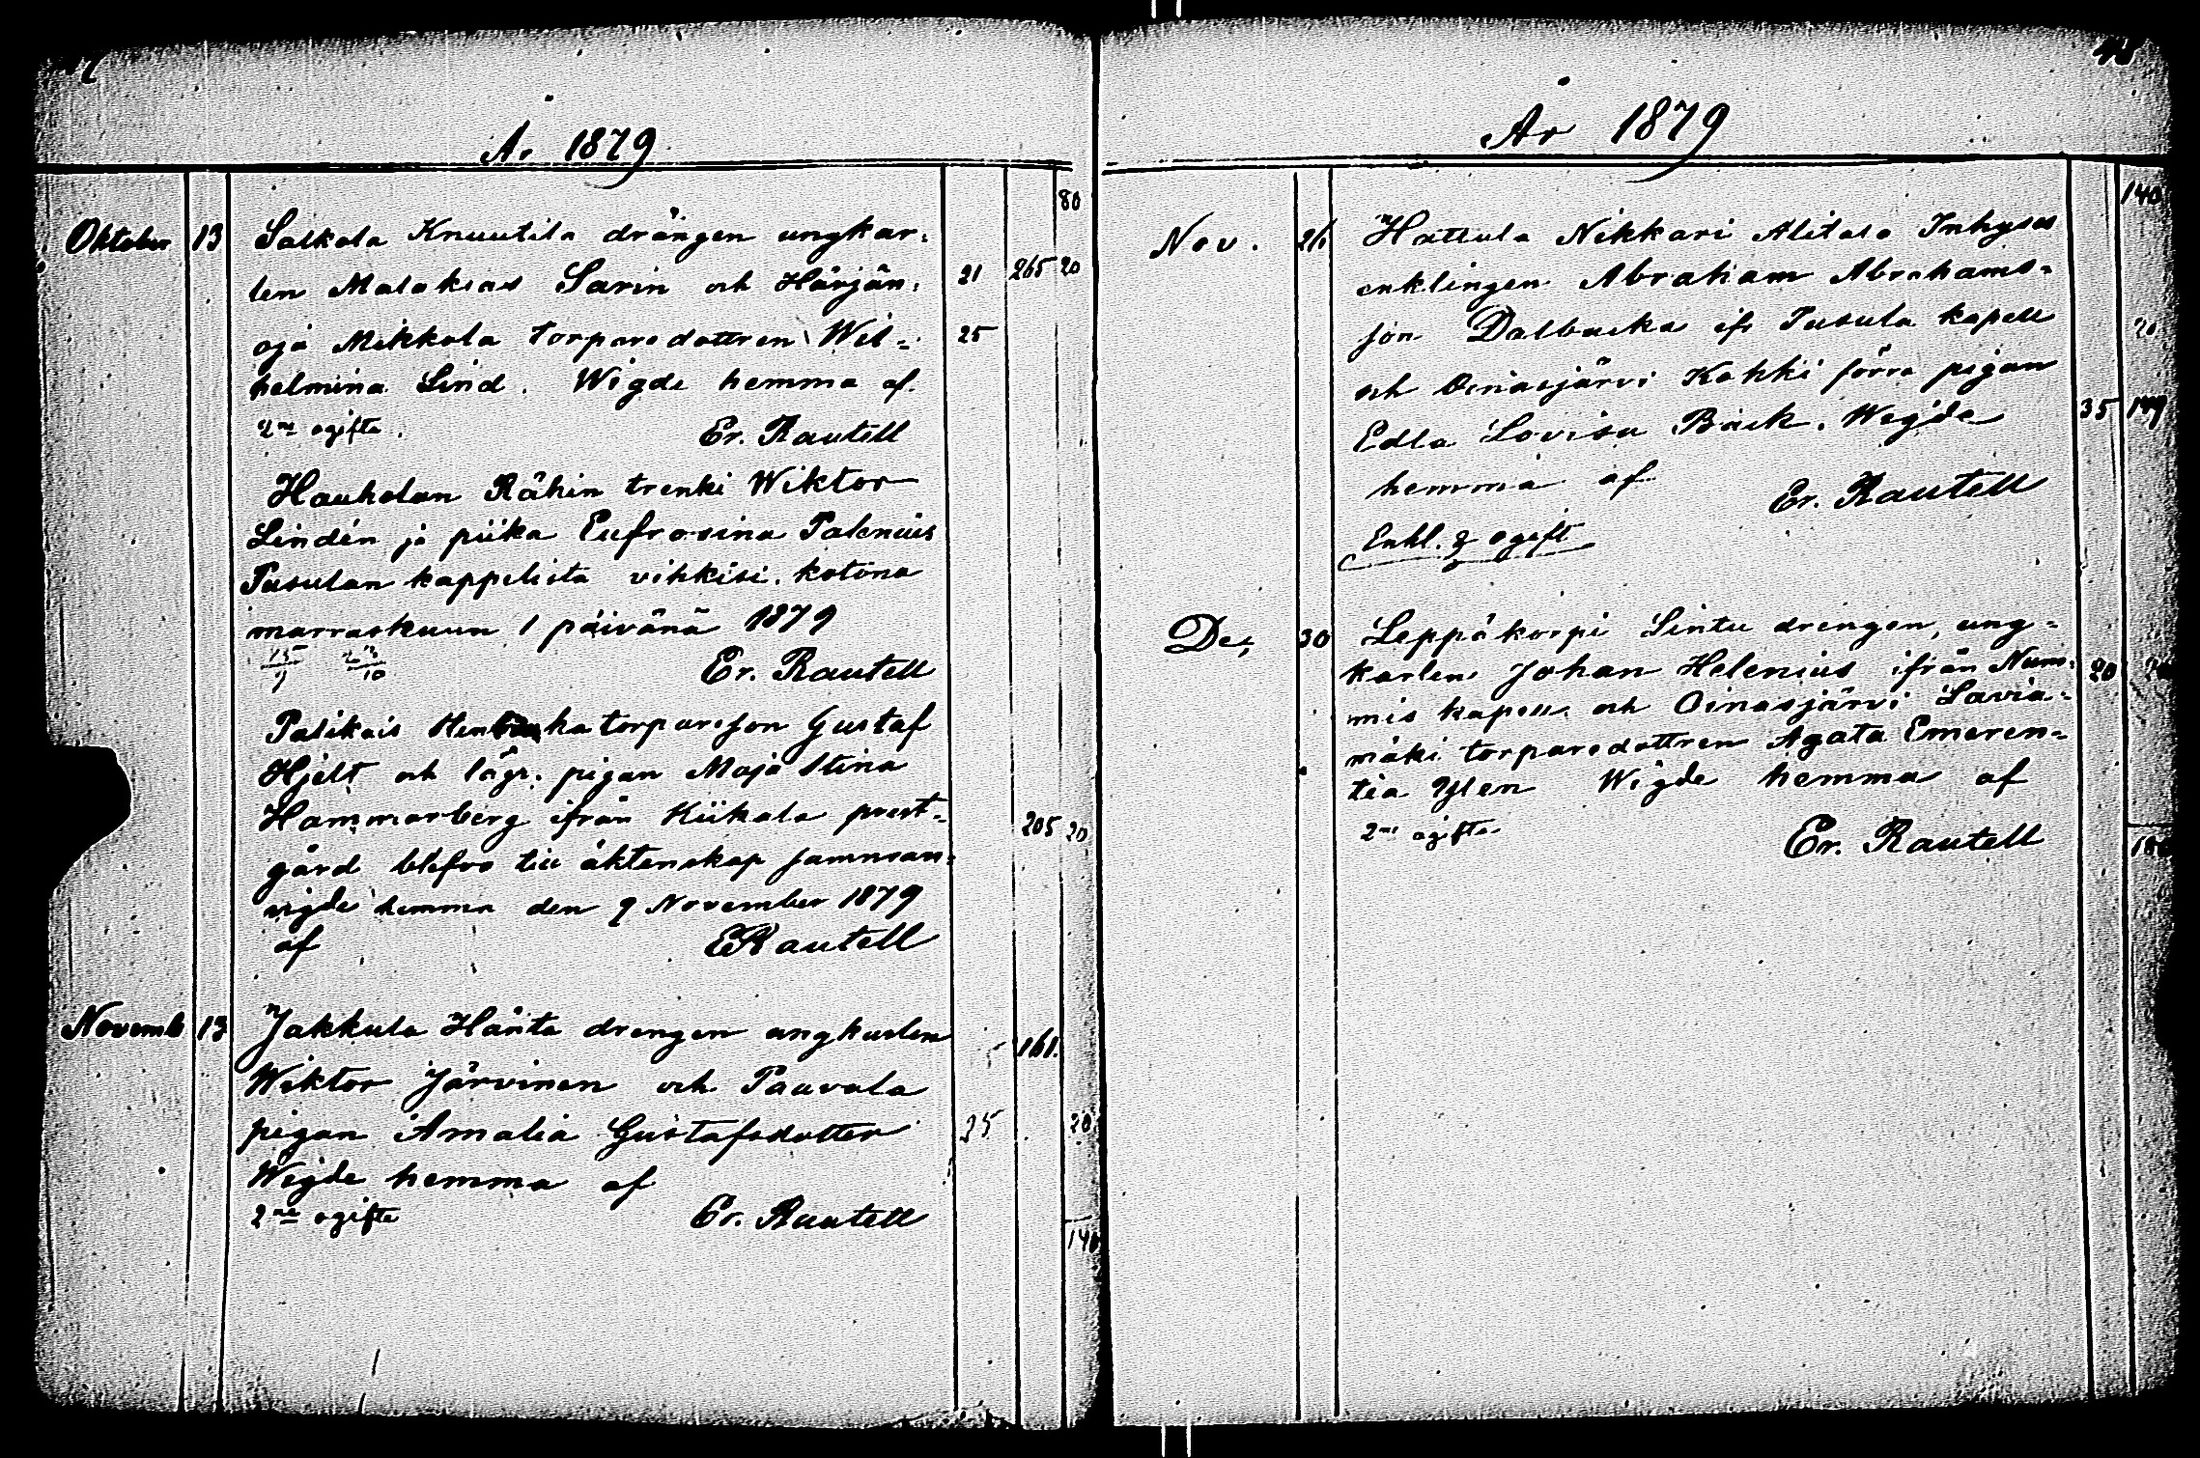 År 1879
80
Oktober 13 Salkola Knuutila drängen ungkar-
len Malakias Sarin och Härjän- 21 265 20
oja Mikkola torparedottren Wil- 25
helmina Lind. Wigde hemma af
2ne ogifta. Er. Rautell
Hauholan Rähin trenki Wiktor
Lindén ja piika Eufrosina Palenius
Pusulan kappelista vihkisi kotona
marraskuun 1 päivänä 1879
Er. Rautell
Palikais torpareson Gustaf
Hjelt och lägr. pigan Maja Stina
Hammarberg ifrån Kiikala prest-
gård blefvo till äktenskap samman- 205 20
vigde hemma den 9 November 1879
af ERautell
Novemb 13 Jakkula Hänta drengen ungkarlen 161.
Wiktor Järvinen och Paavola
pigan Amalia Gustafsdotter 25 20
Wigde hemma af
2ne ogifta Er. Rautell
140
År 1879
140
Nov. Hattula Nikkari Alitalo Inhyses
enklingen Abraham Abrahams-
son Dalbacka ifr Pusula kapell 20
och Oinasjärvi Kahki förra pigan
Edla Lovisa Back. Wigde 35 149
hemma af Er. Rautell
Enkl. & ogift
Dec. 30 Leppäkorpi Sintu drengen, ung-
karlen Johan Helenius ifrån Num- 20 20
mis kapell och Oinasjärvi Lavia-
mäki torparedottren Agata Emeren-
tia Ylen Wigde hemma af
2ne ogifta Er. Rautell